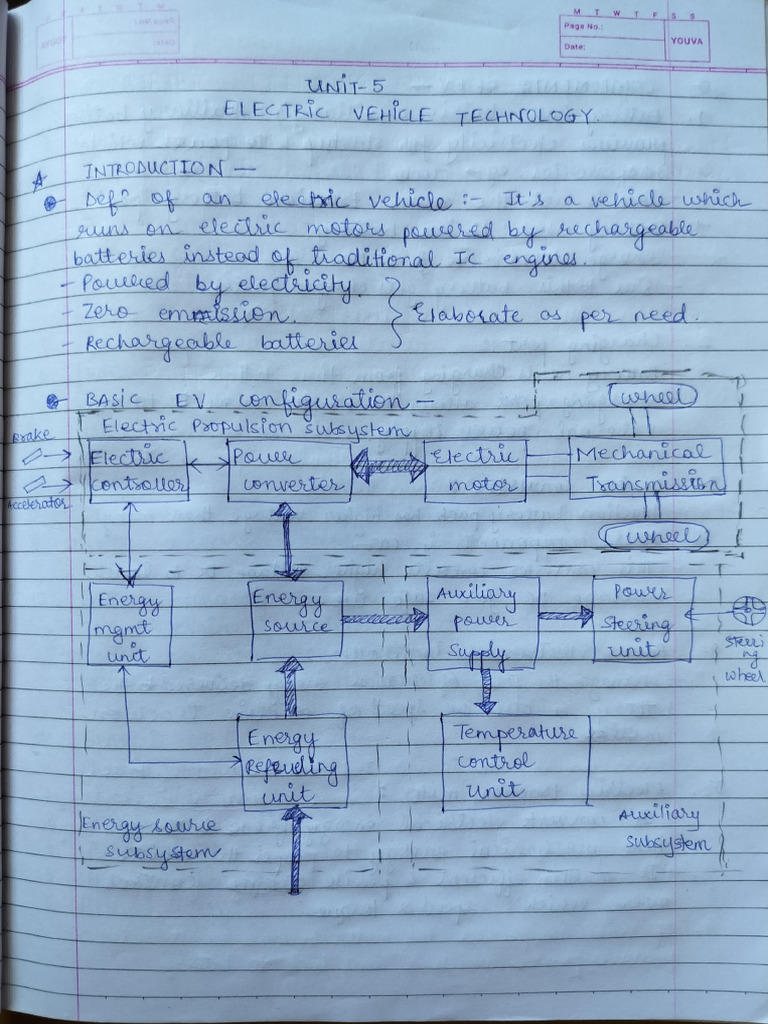 M T W T F S S
Page No.:
Date:
YOUVA
UNIT-5
ELECTRIC VEHICLE TECHNOLOGY.
INTRODUCTION —
Defⁿ of an electric vehicle :- It's a vehicle which
runs on electric motors powered by rechargeable
batteries instead of traditional IC engines.
- Powered by electricity.
- Zero emmission. } Elaborate as per need.
- Rechargeable batteries
BASIC EV configuration —
wheel
Electric Propulsion subsystem
Brake
Electric
controller
Power
converter
Electric
motor
Mechanical
Transmission
Accelerator
wheel
Energy
mgmt
unit
Energy
source
Auxiliary
power
supply
Power
Steering
unit
Steeri
ng
wheel
Energy
Refueling
unit
Temperature
control
Unit
Energy source
subsystem
Auxiliary
subsystem